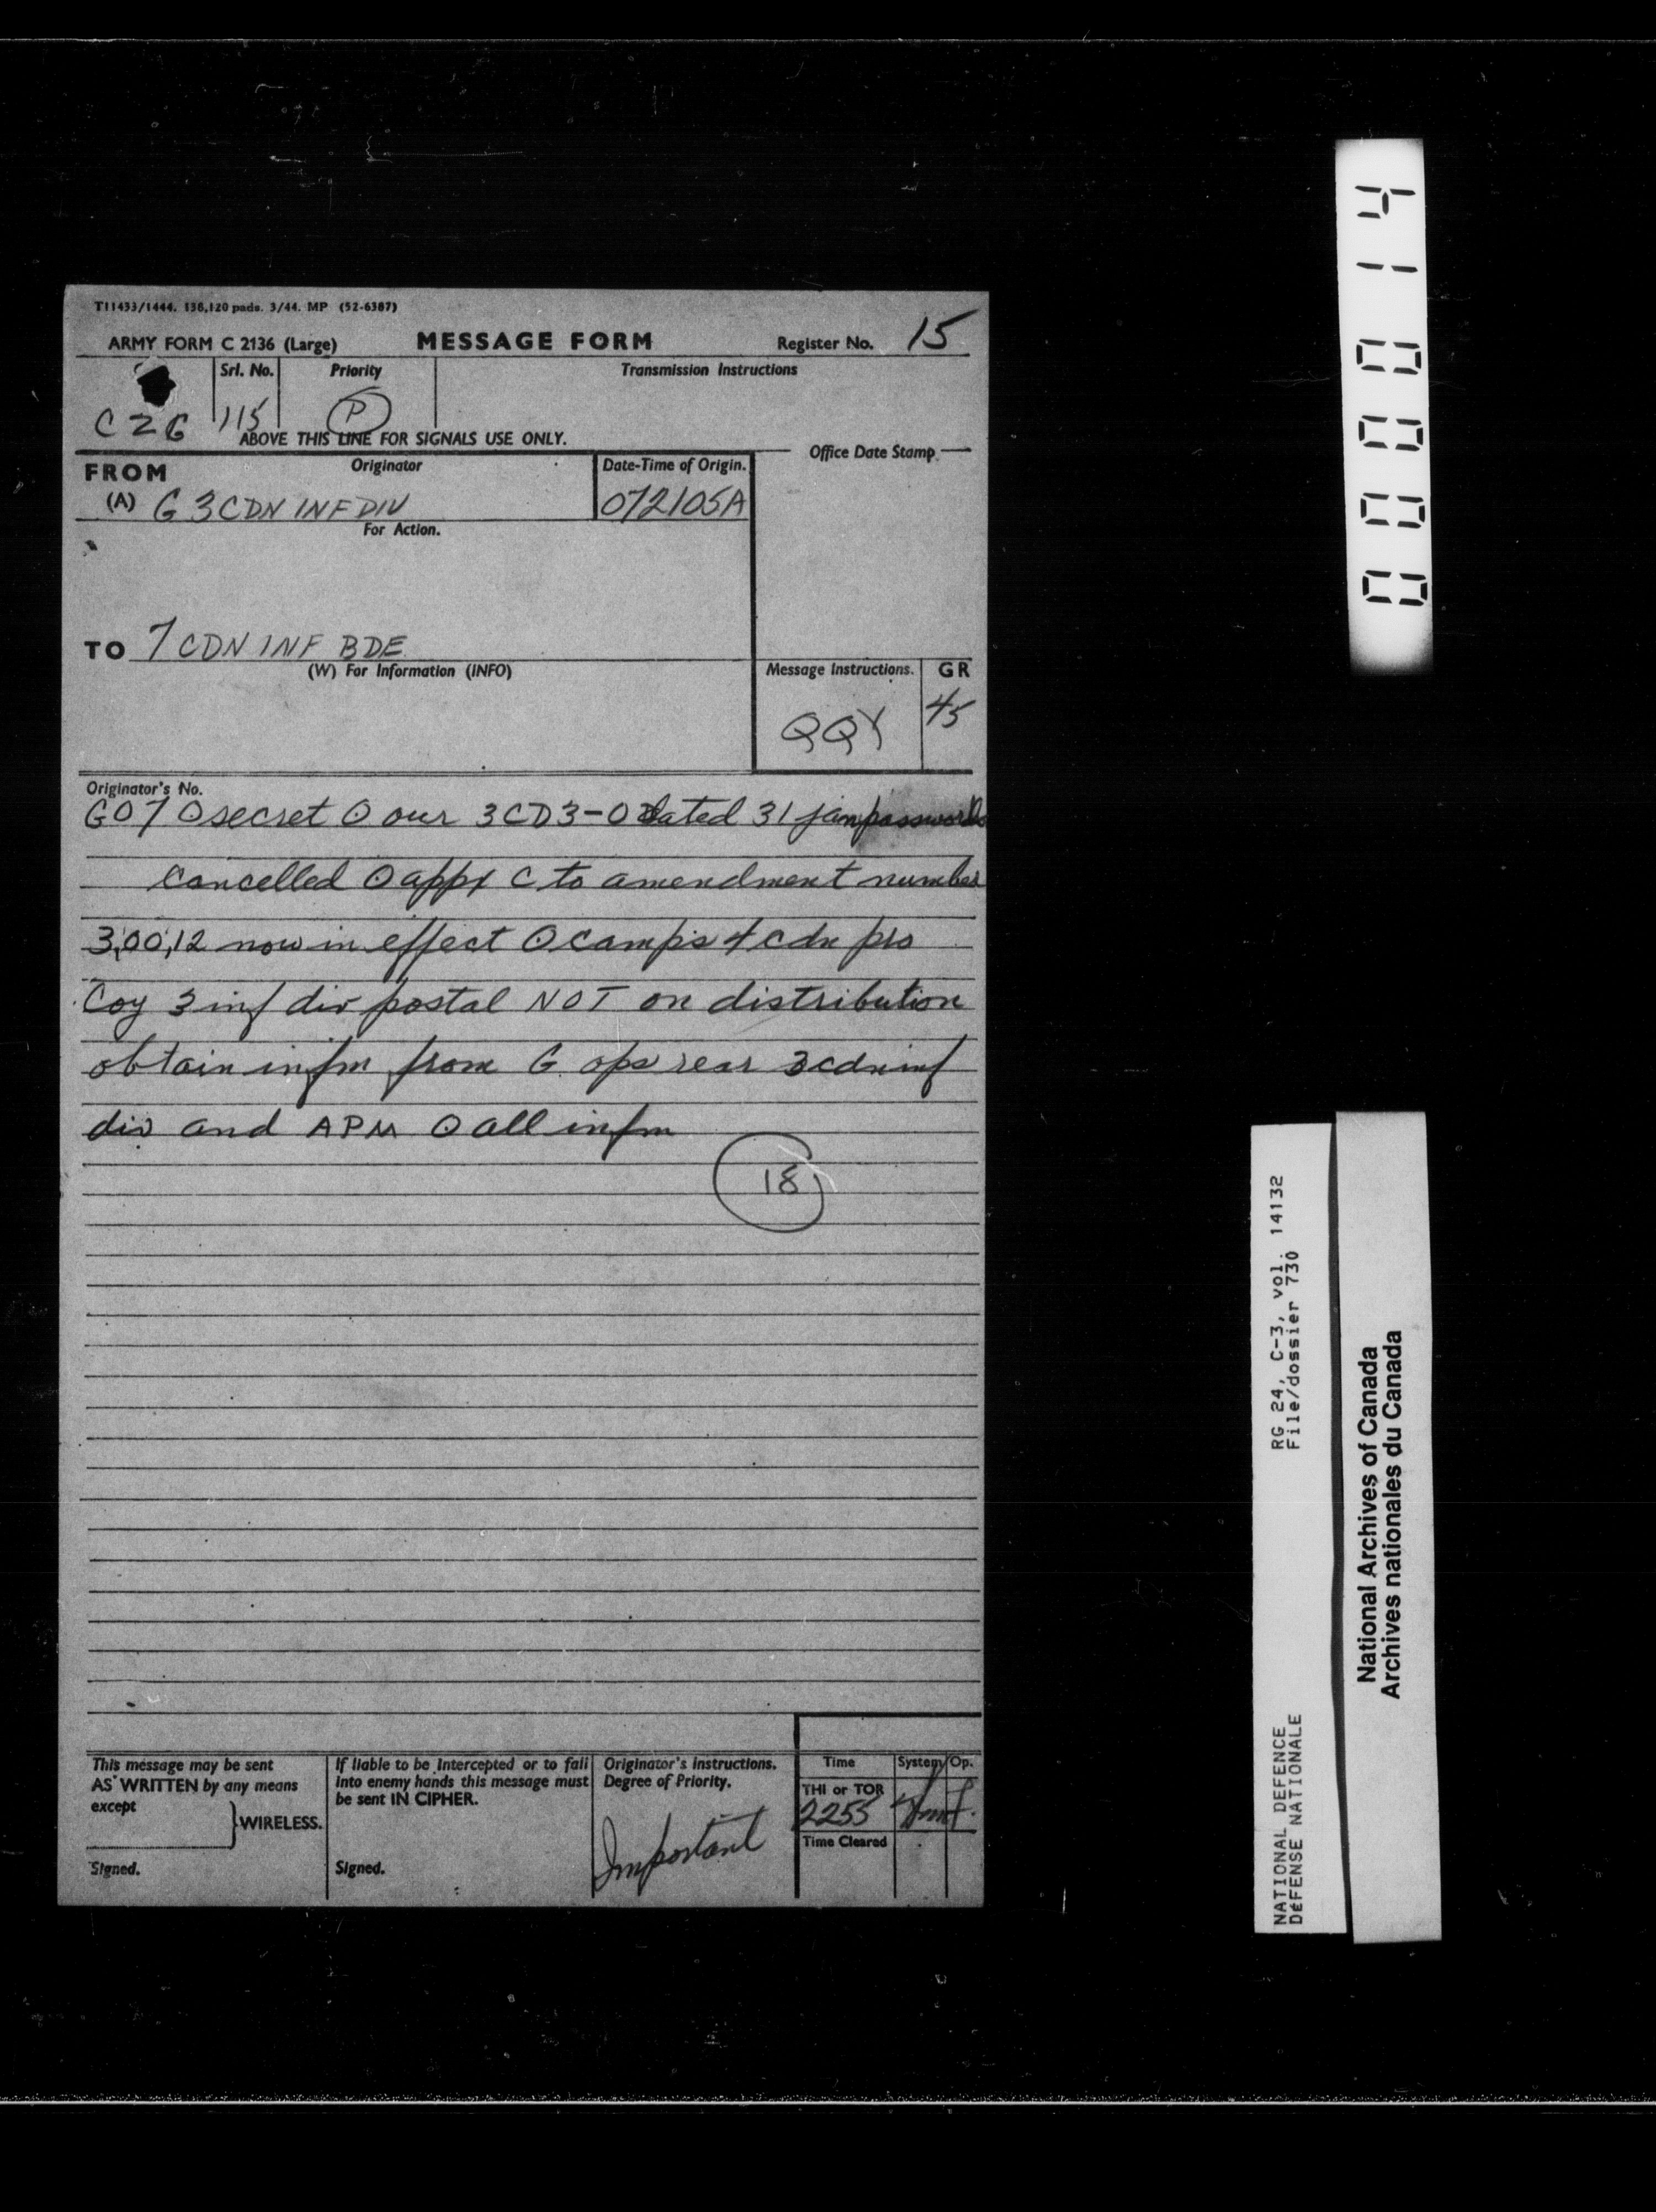 T11433/1444. 138,120 pads. 3/44. MP (52-6387)
ARMY FORM C 2136 (Large) MESSAGE FORM Register No. 15
Srl. No. Priority Transmission Instructions
C2G 115 P
ABOVE THIS LINE FOR SIGNALS USE ONLY.
Office Date Stamp
FROM Originator Date-Time of Origin.
(A) G 3 CDN INF DIV 072105A
For Action.
TO 7 CDN INF BDE
(W) For Information (INFO) Message Instructions. GR
QQY 45
Originator's No.
G07 O secret O our 3CD3-0 dated 31 jan passwords
cancelled O appx C to amendment number
3,00,12 now in effect O camps 4 cdn pro
Coy 3 inf div postal NOT on distribution
obtain infm from G ops rear 3 cdn inf
div and APM O all infm
18
This message may be sent AS WRITTEN by any means except WIRELESS.
Signed.
If liable to be intercepted or to fall into enemy hands this message must be sent IN CIPHER.
Signed.
Originator's Instructions. Degree of Priority.
Important
Time System Op.
THI or TOR
2255
Time Cleared
00014
RG 24, C-3, vol. 14132
File/dossier 730
NATIONAL DEFENCE
DÉFENSE NATIONALE
National Archives of Canada
Archives nationales du Canada